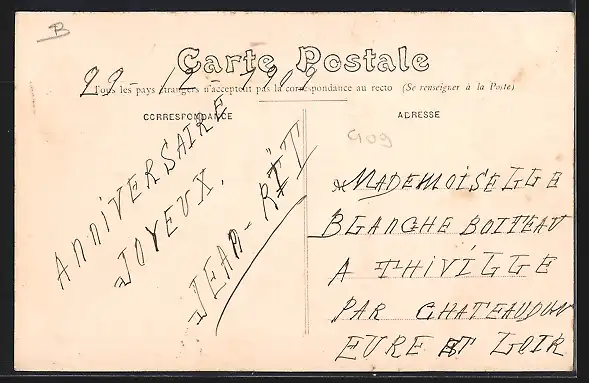 B
Carte Postale
22-12-1909
Tous les pays étrangers n'acceptent pas la correspondance au recto (Se renseigner à la Poste)
CORRESPONDANCE
ADRESSE
G09
ANNIVERSAIRE
JOYEUX.
JEAN-RÉT
MADEMOISELLE
BLANCHE BOITEAU
A THIVILLE
PAR CHATEAUDUN
EURE ET LOIR